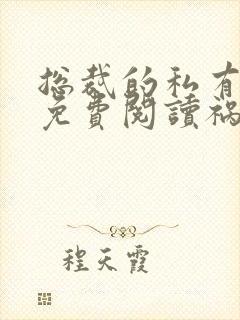 总裁的私有
免費閱讀禍
程天霞